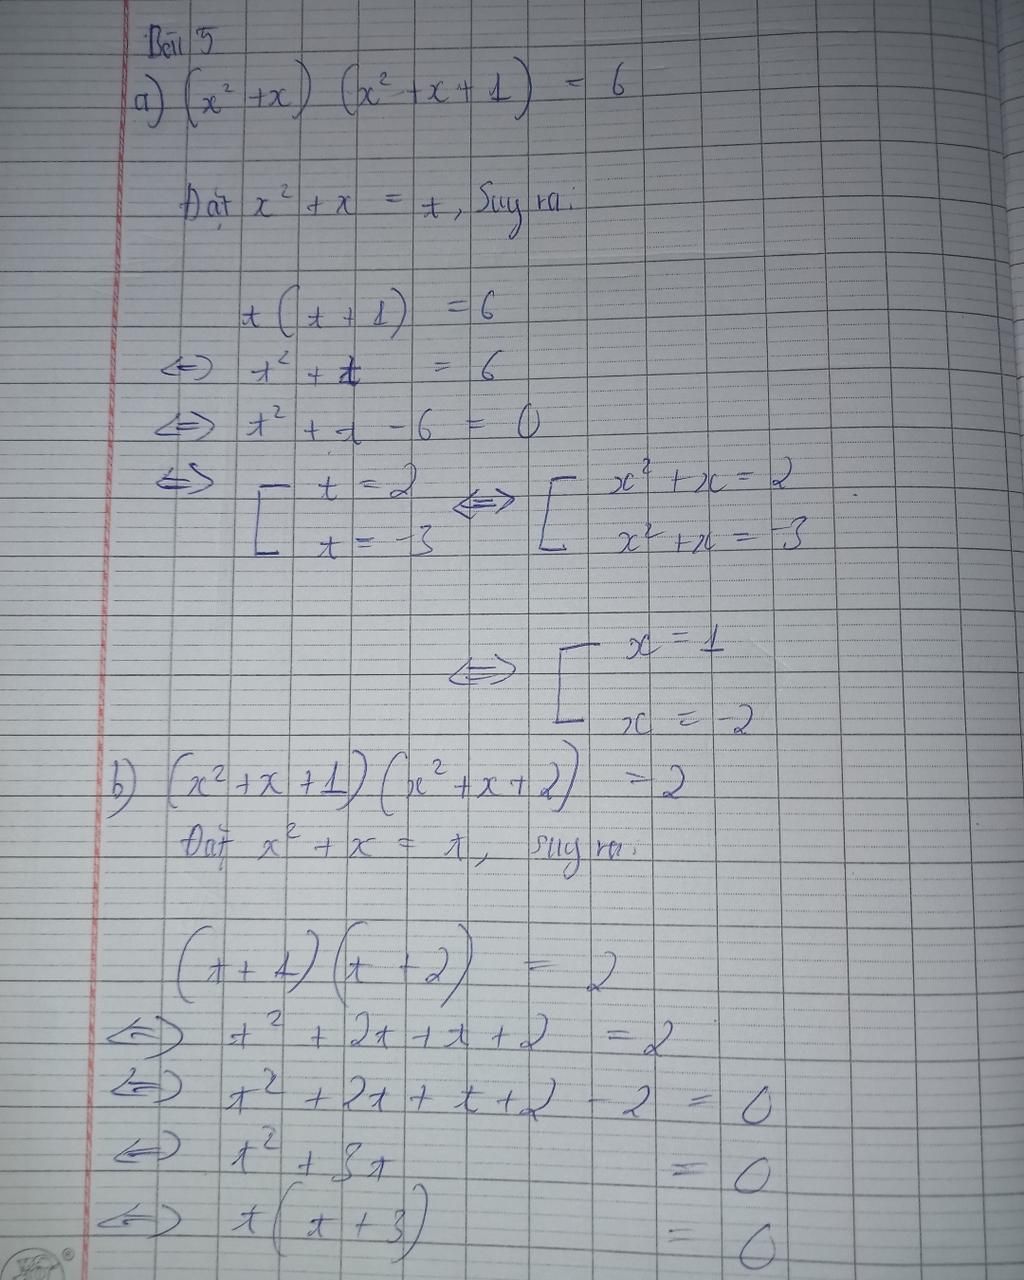 Bài 5
a) (x² + x) (x² + x + 1) = 6
Đặt x² + x = t, Suy ra:
t (t + 1) = 6
⇔ t² + t = 6
⇔ t² + t - 6 = 0
⇔ [ t = 2 ⇔ [ x² + x = 2
t = -3 x² + x = -3
⇔ [ x = 1
x = -2
b) (x² + x + 1) (x² + x + 2) = 2
Đặt x² + x = t, suy ra:
(t + 1) (t + 2) = 2
⇔ t² + 2t + t + 2 = 2
⇔ t² + 2t + t + 2 - 2 = 0
⇔ t² + 3t = 0
⇔ t (t + 3) = 0